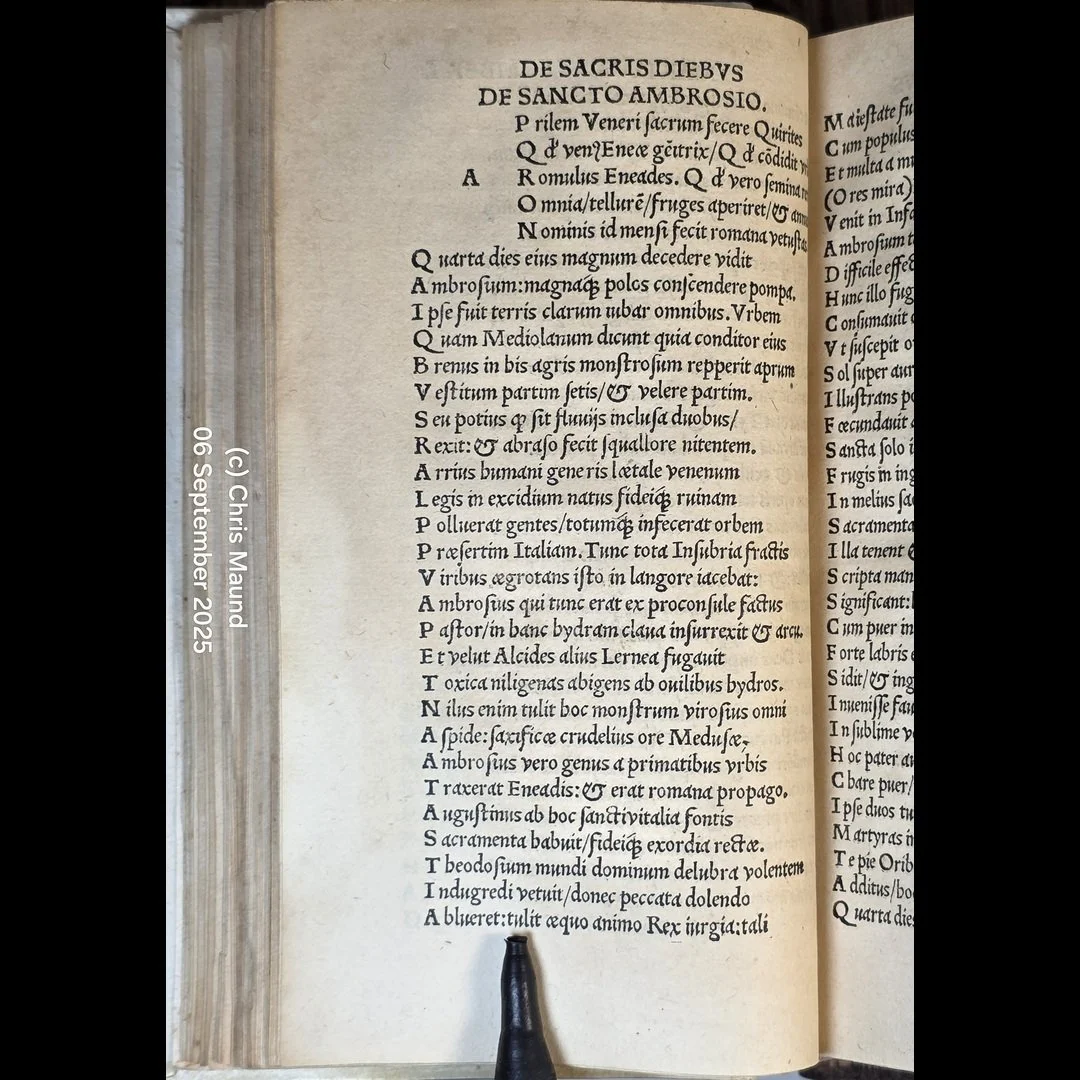 DE SACRIS DIEBVS
DE SANCTO AMBROSIO.
A Prilem Veneri ſacrum fecere Quirites
Qđ venꝰ Eneæ gēitrix/Qđ cōdidit
Romulus Eneades. Qđ vero ſemina
Omnia/tellurē/fruges aperiret/&
Nominis id menſi fecit romana vetuſtas
Quarta dies eius magnum decedere vidit
Ambroſium:magnaq̃ꝫ polos conſcendere pompa.
Ipſe fuit terris clarum iubar omnibus.Vrbem
Quam Mediolanum dicunt quia conditor eius
Brenus in his agris monſtroſum repperit aprum
Veſtitum partim ſetis/& velere partim.
Seu potius ꝙ ſit fluuijs incluſa duobus/
Rexit:& abraſo fecit ſquallore nitentem.
Arrius humani generis lætale venenum
Legis in excidium natus fideiq̃ꝫ ruinam
Polluerat gentes/totumq̃ꝫ infecerat orbem
Præſertim Italiam.Tunc tota Inſubria fractis
Viribus ægrotans iſto in langore iacebat:
Ambroſius qui tunc erat ex proconſule factus
Paſtor/in hanc hydram claua inſurrexit & arcu.
Et velut Alcides alius Lernea fugauit
Toxica niligenas abigens ab ouilibus hydros.
Nilus enim tulit hoc monſtrum viroſius omni
Aſpide:ſaxificæ crudelius ore Meduſæ,
Ambroſius vero genus a primatibus vrbis
Traxerat Eneadis:& erat romana propago.
Auguſtinus ab hoc ſancti vitalia fontis
Sacramenta habuit/fideiq̃ꝫ exordia rectæ.
Theodoſium mundi dominum delubra volentem
Indugredi vetuit/donec peccata dolendo
Ablueret:tulit æquo animo Rex iurgia:tali
Maieſtate
Cum populus
Et multa a
(O res mira)
Venit in
Ambroſium
Difficile
Hunc illo
Conſumauit
Vt ſuſcepit
Sol ſuper
Illuſtrans
Fœcundauit
Sancta ſolo
Frugis in
In melius
Sacramenta
Illa tenent
Scripta
Significant:
Cum puer in
Forte labris
Sidit/&
Inueniſſe
In ſublime
Hoc pater
Chare puer/
Ipſe duos
Martyras
Te pie
Additus/
Quarta
(c) Chris Maund
06 September 2025